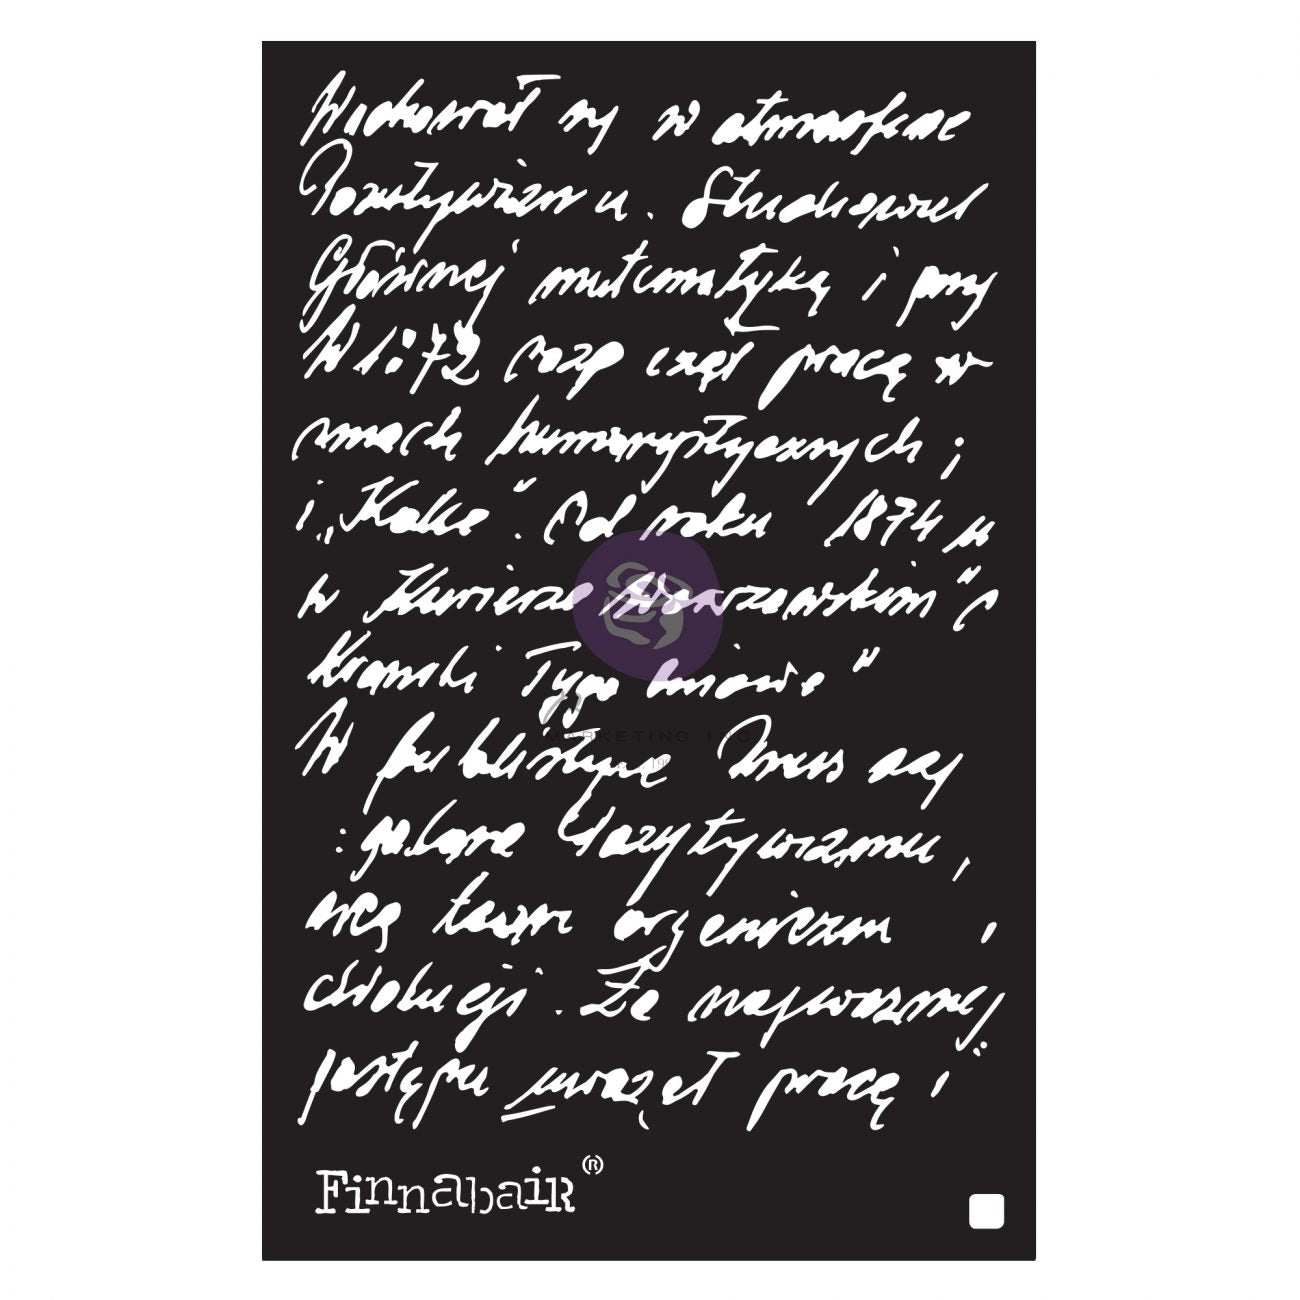 Wychował się w atmosferze
Pozytywizmu. Studiował
Głównej matematykę i przy
W 1872 rozpoczął pracę w
smach humorystycznych;
i „Kolce”. Od roku 1874
w Kurierze Warszawskim” 
Tygo dniowe”
W publistyce Prus
: Pozytywizmu,
organizm i
ewolucji. Za najważniej
postępu uważał pracę i
MARKETING INC
Finnabair®